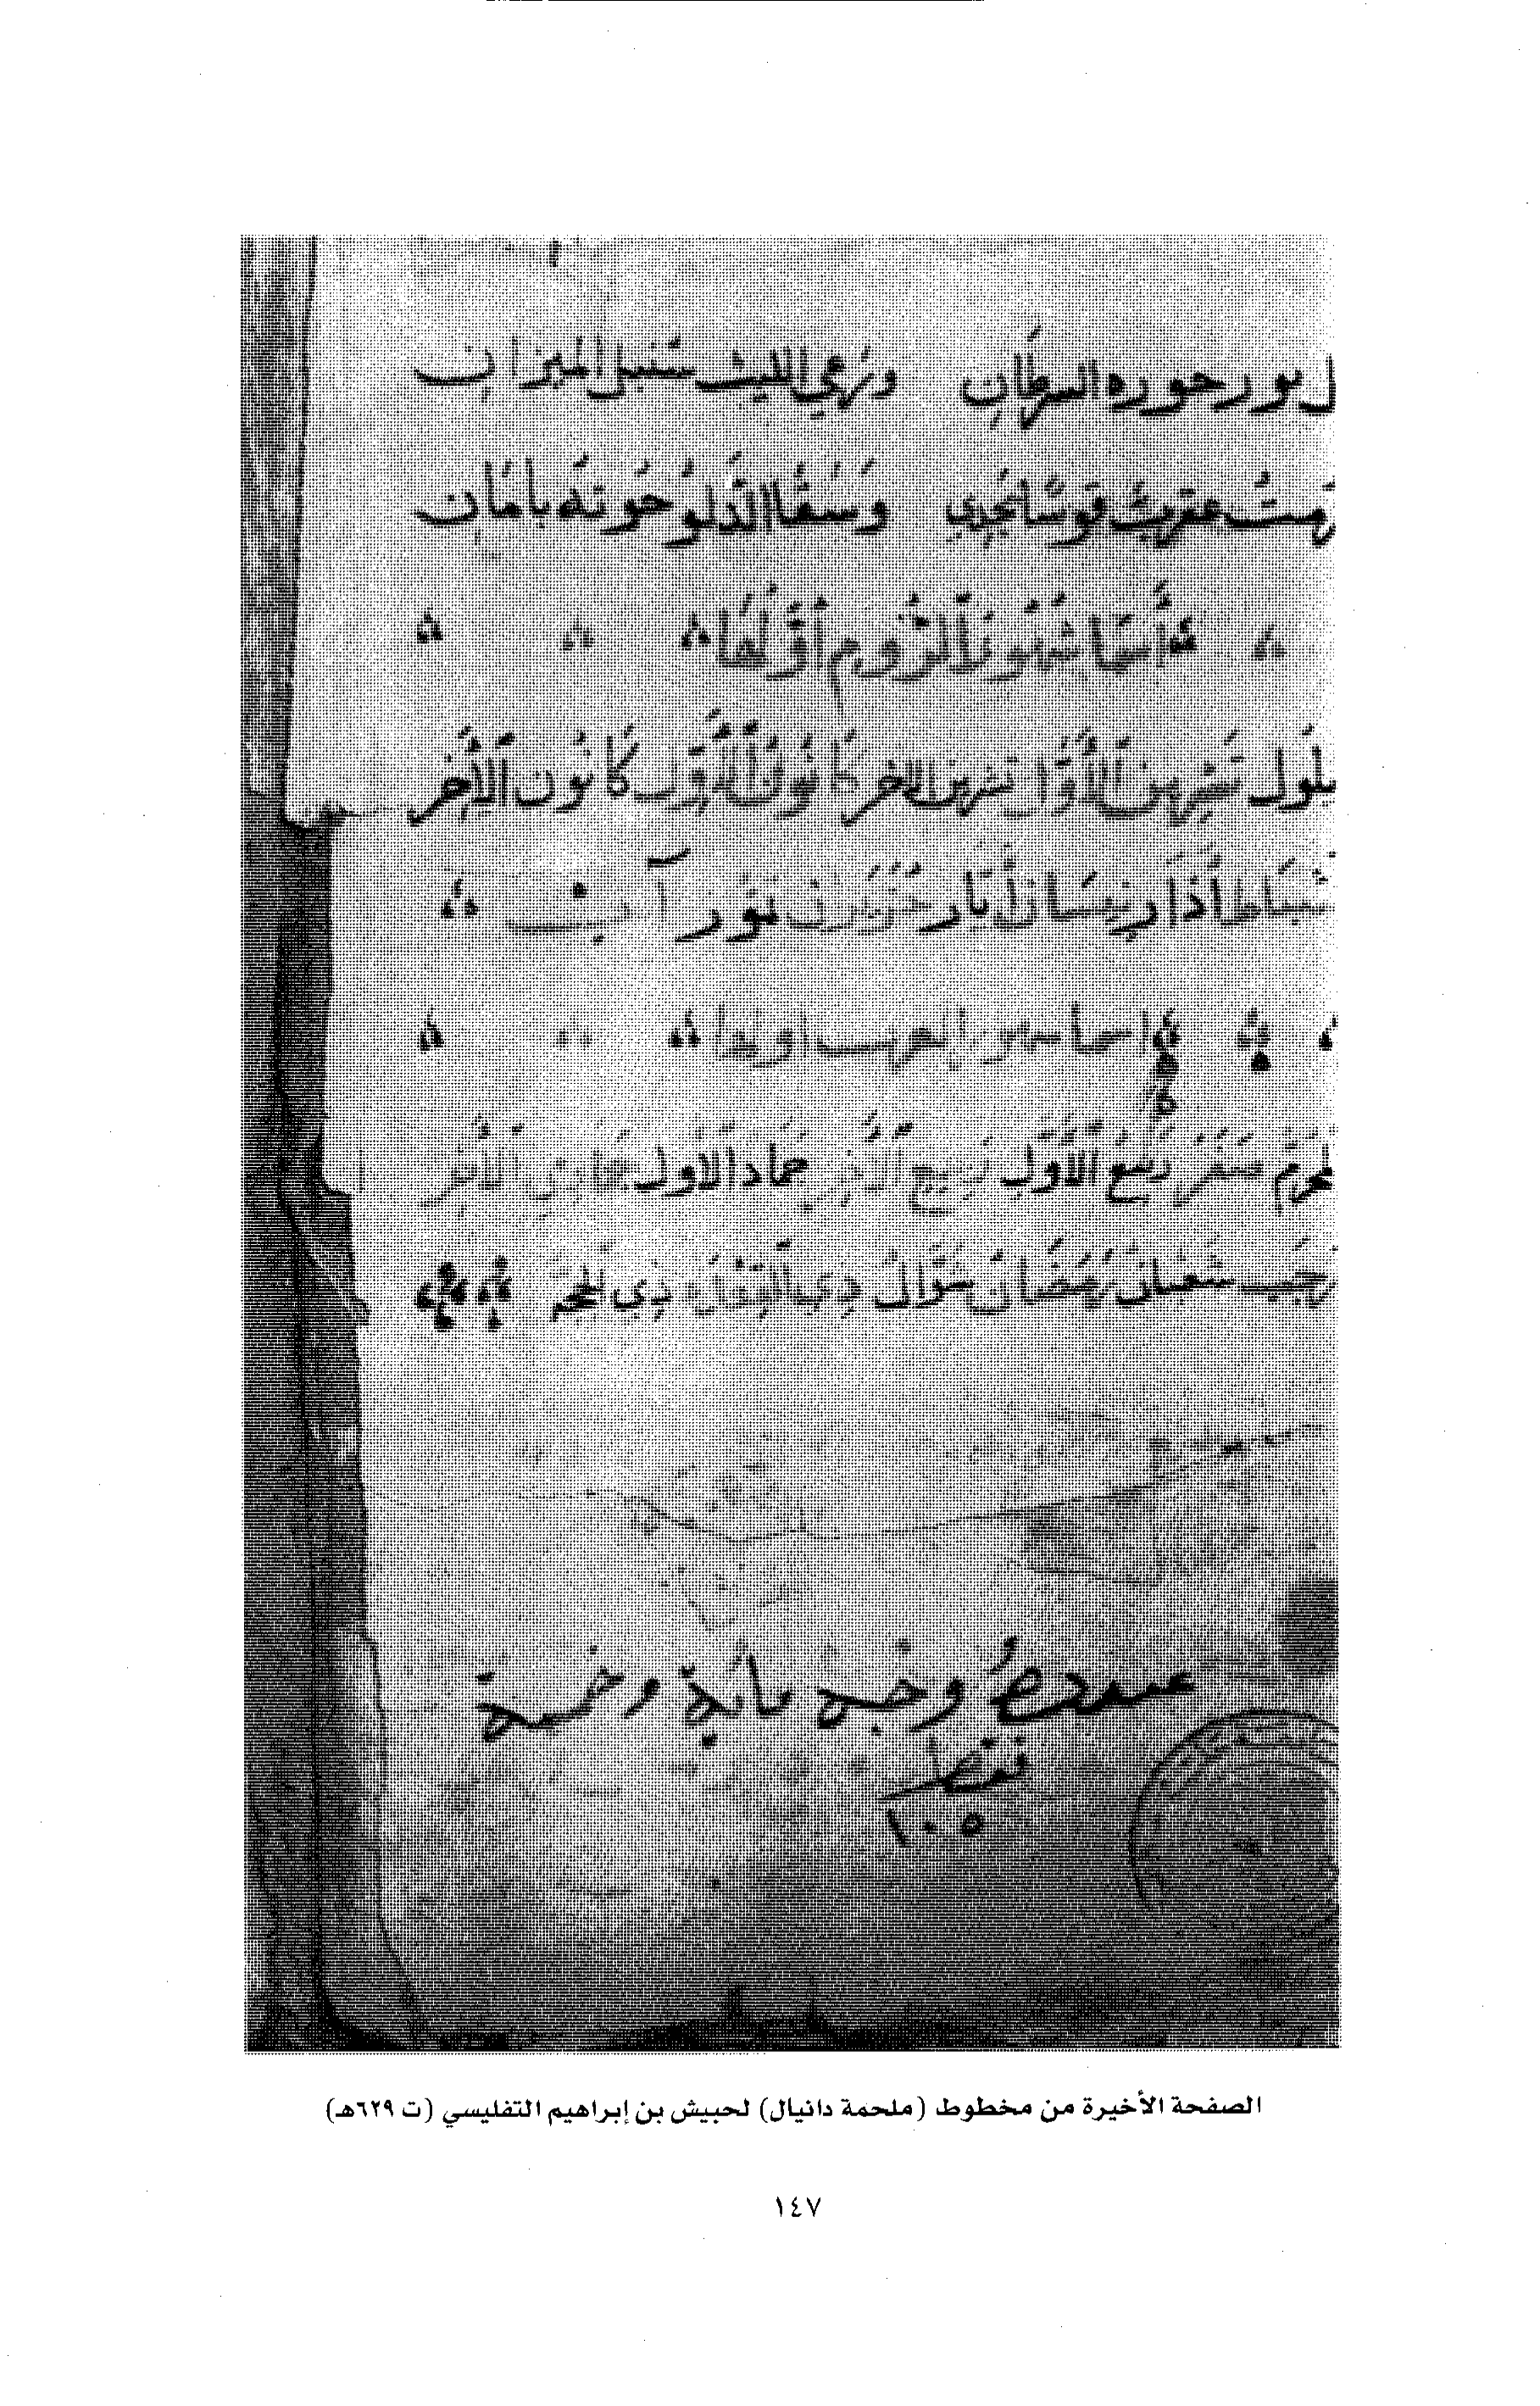 ل ىور حوره السرطان ورعي الليث سنبل الميزان
رمت عقرب قوسا بجدي وسقا الدلو حوته بامان
أسما شهور الروم أولها
يلول تشرين الأول تشرين الاخر كانون الأول كانون الآخر
شباط أذار نيسان أيار حزيران تموز آب
اسما شهور العرب اولها
لمحرم صفر ربيع الأول ربيع الآخر جماد الاول جماد
رجب شعبان رمضان شوال ذي القعدة ذي الحجة
وجه مائة وخمسة
فقط
١٠٥
الصفحة الأخيرة من مخطوط (ملحمة دانيال) لحبيش بن إبراهيم التفليسي (ت ٦٢٩هـ)
١٤٧